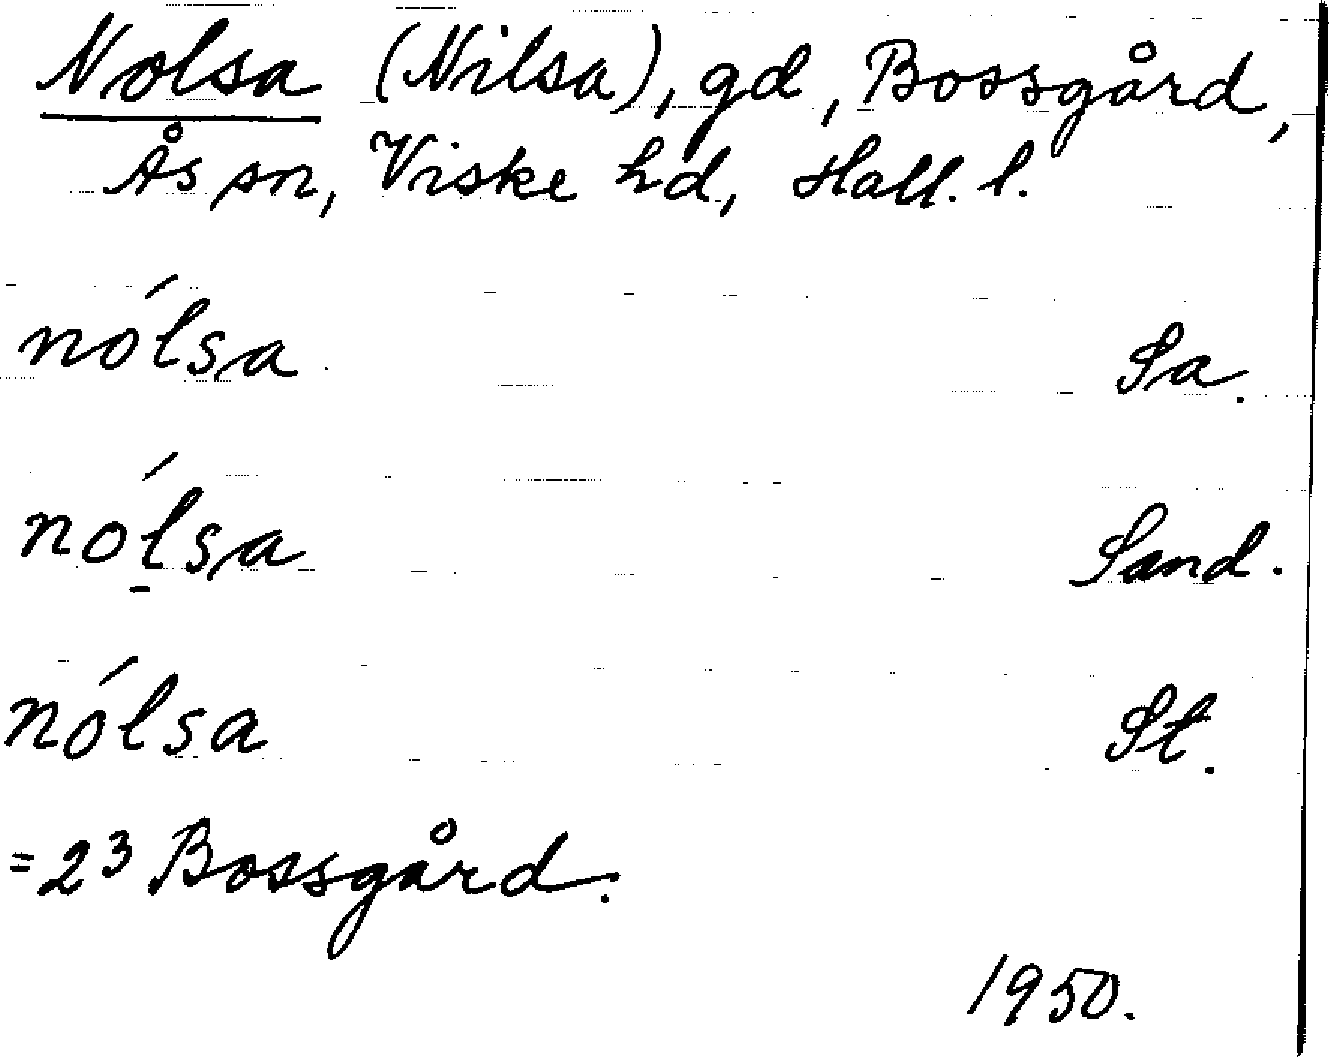 Nolsa (Nilsa), gd, Bossgård,
Ås sn, Viske hd, Hall. l.
nólsa Sa.
nólsa Sand.
nólsa St.
=2³ Bossgård.
1950.